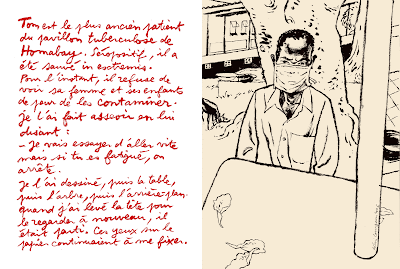 Tom est le plus ancien patient
du pavillon tuberculose de
Homabay. Séropositif, il a
été sauvé in extremis.
Pour l'instant, il refuse de
voir sa femme et ses enfants
de peur de les contaminer.
Je l'ai fait asseoir en lui
disant :
- Je vais essayer d'aller vite
mais si tu es fatigué, on
arrête.
Je l'ai dessiné, puis la table,
puis l'arbre, puis l'arrière-plan.
quand j'ai levé la tête pour
le regarder à nouveau, il
était parti. Ces yeux sur le
papier continuaient à me fixer.